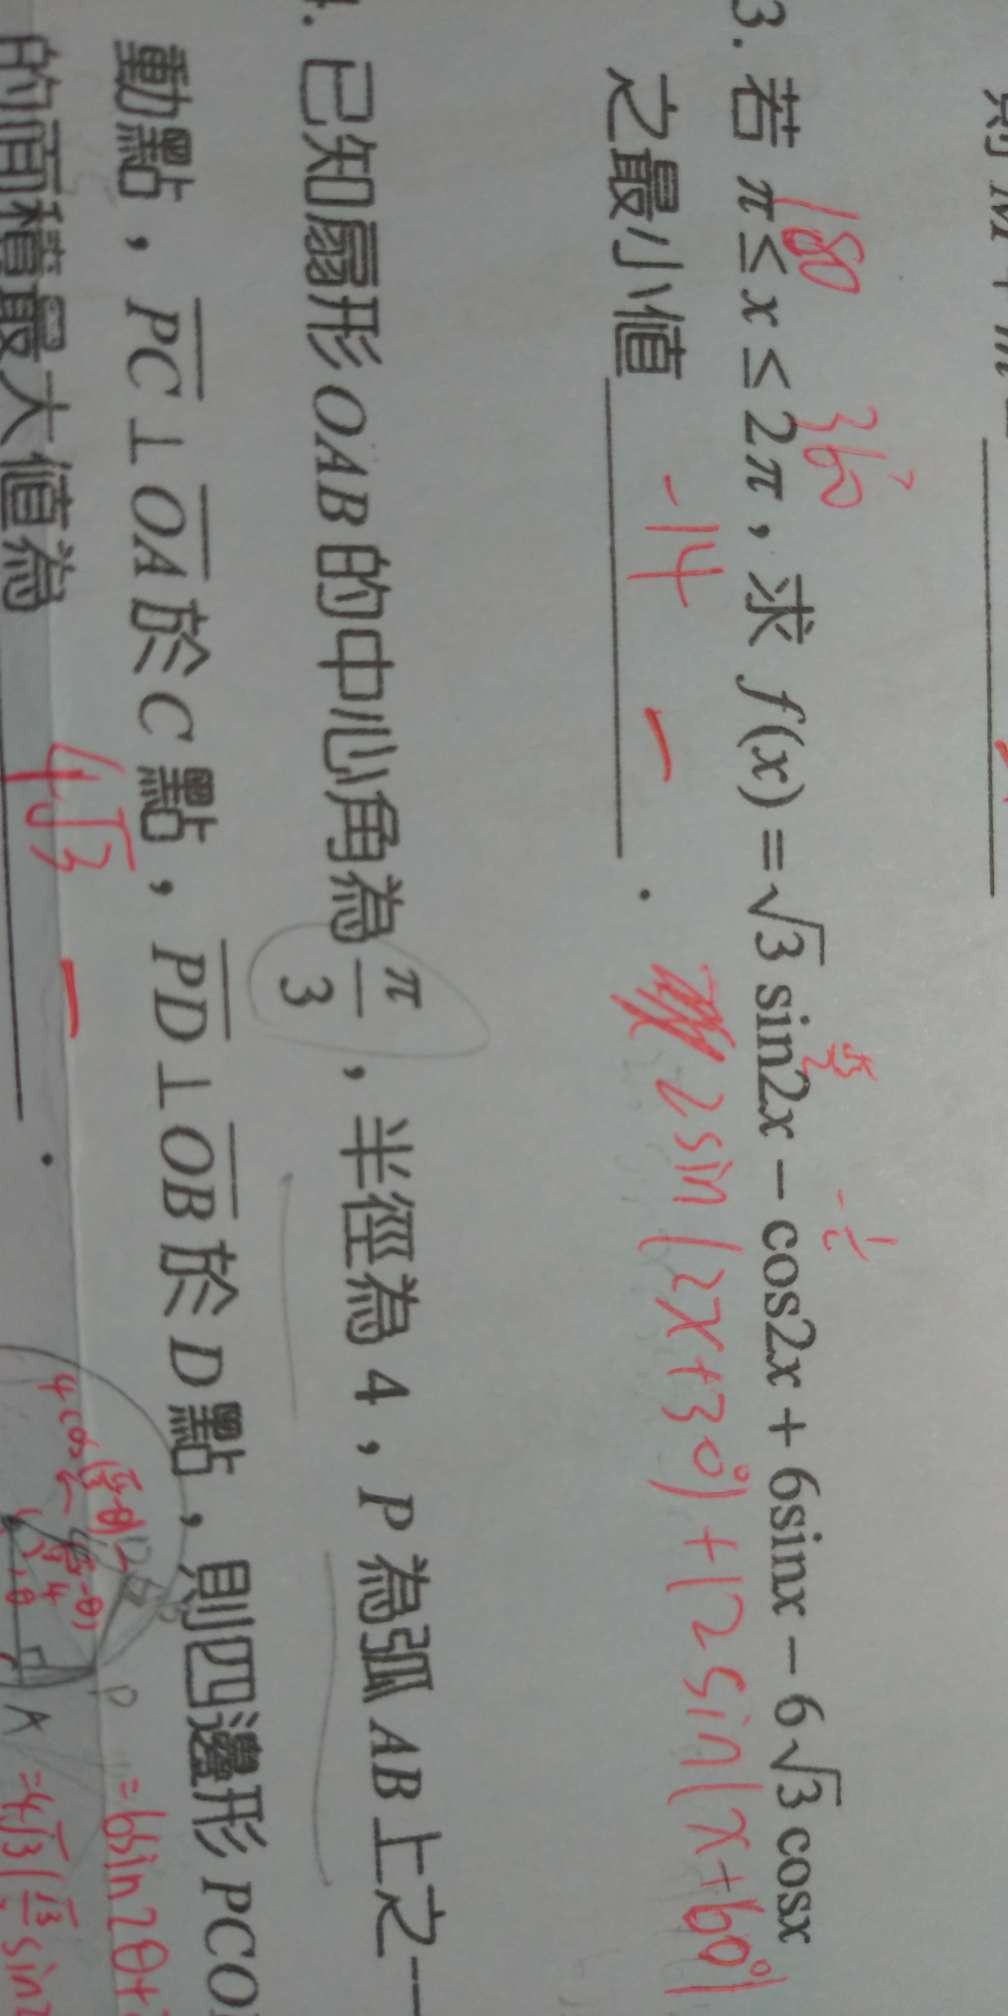 則 M + m =
3. 若 π ≤ x ≤ 2π，求 f(x) = √3 sin2x − cos2x + 6sinx − 6√3 cosx
180 360°
√3/2 -1/2
之最小值 -14 .
2sin(2x+30°)+12sin(x+60°)
. 已知扇形 OAB 的中心角為 π/3，半徑為 4，P 為弧 AB 上之一
動點，PC ⊥ OA 於 C 點，PD ⊥ OB 於 D 點，則四邊形 PCO
的面積最大值為 4√3 .
P
A
θ
=6sin2θ+
=4√3(√3/2 sin2